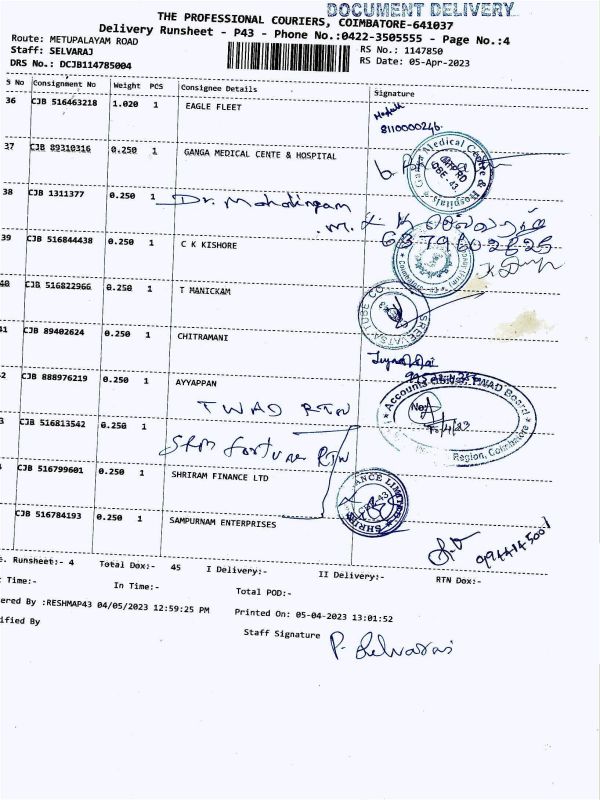 DOCUMENT DELIVERY
THE PROFESSIONAL COURIERS, COIMBATORE-641037
Delivery Runsheet - P43 - Phone No.:0422-3505555 - Page No.:4
Route: METUPALAYAM ROAD
RS No.: 1147850
Staff: SELVARAJ
RS Date: 05-Apr-2023
DRS No.: DCJB114785004
S No Consignment No Weight PCS Consignee Details Signature
36 CJB 516463218 1.020 1 EAGLE FLEET
8110000246
37 CJB 89310316 0.250 1 GANGA MEDICAL CENTE & HOSPITAL
Ganga Medical Centre & Hospitals
CBE-43
38 CJB 1311377 0.250 1 Dr. Mahalingam
.M.
6379602825
39 CJB 516844438 0.250 1 C K KISHORE
40 CJB 516822966 0.250 1 T MANICKAM
SREE VATSA TUBE CO
41 CJB 89402624 0.250 1 CHITRAMANI
2 CJB 888976219 0.250 1 AYYAPPAN
TWAD RTN
Accounts TWAD Board
Region, Coimbatore
3 CJB 516813542 0.250 1
SRM fortune RTN
CJB 516799601 0.250 1 SHRIRAM FINANCE LTD
ANCE LIMITED
SHRI
CBE-43
CJB 516784193 0.250 1 SAMPURNAM ENTERPRISES
9944145001
e. Runsheet:- 4 Total Dox:- 45 I Delivery:- II Delivery:- RTN Dox:-
Time:- In Time:- Total POD:-
ered By :RESHMAP43 04/05/2023 12:59:25 PM Printed On: 05-04-2023 13:01:52
ified By
Staff Signature P. Selvaraj